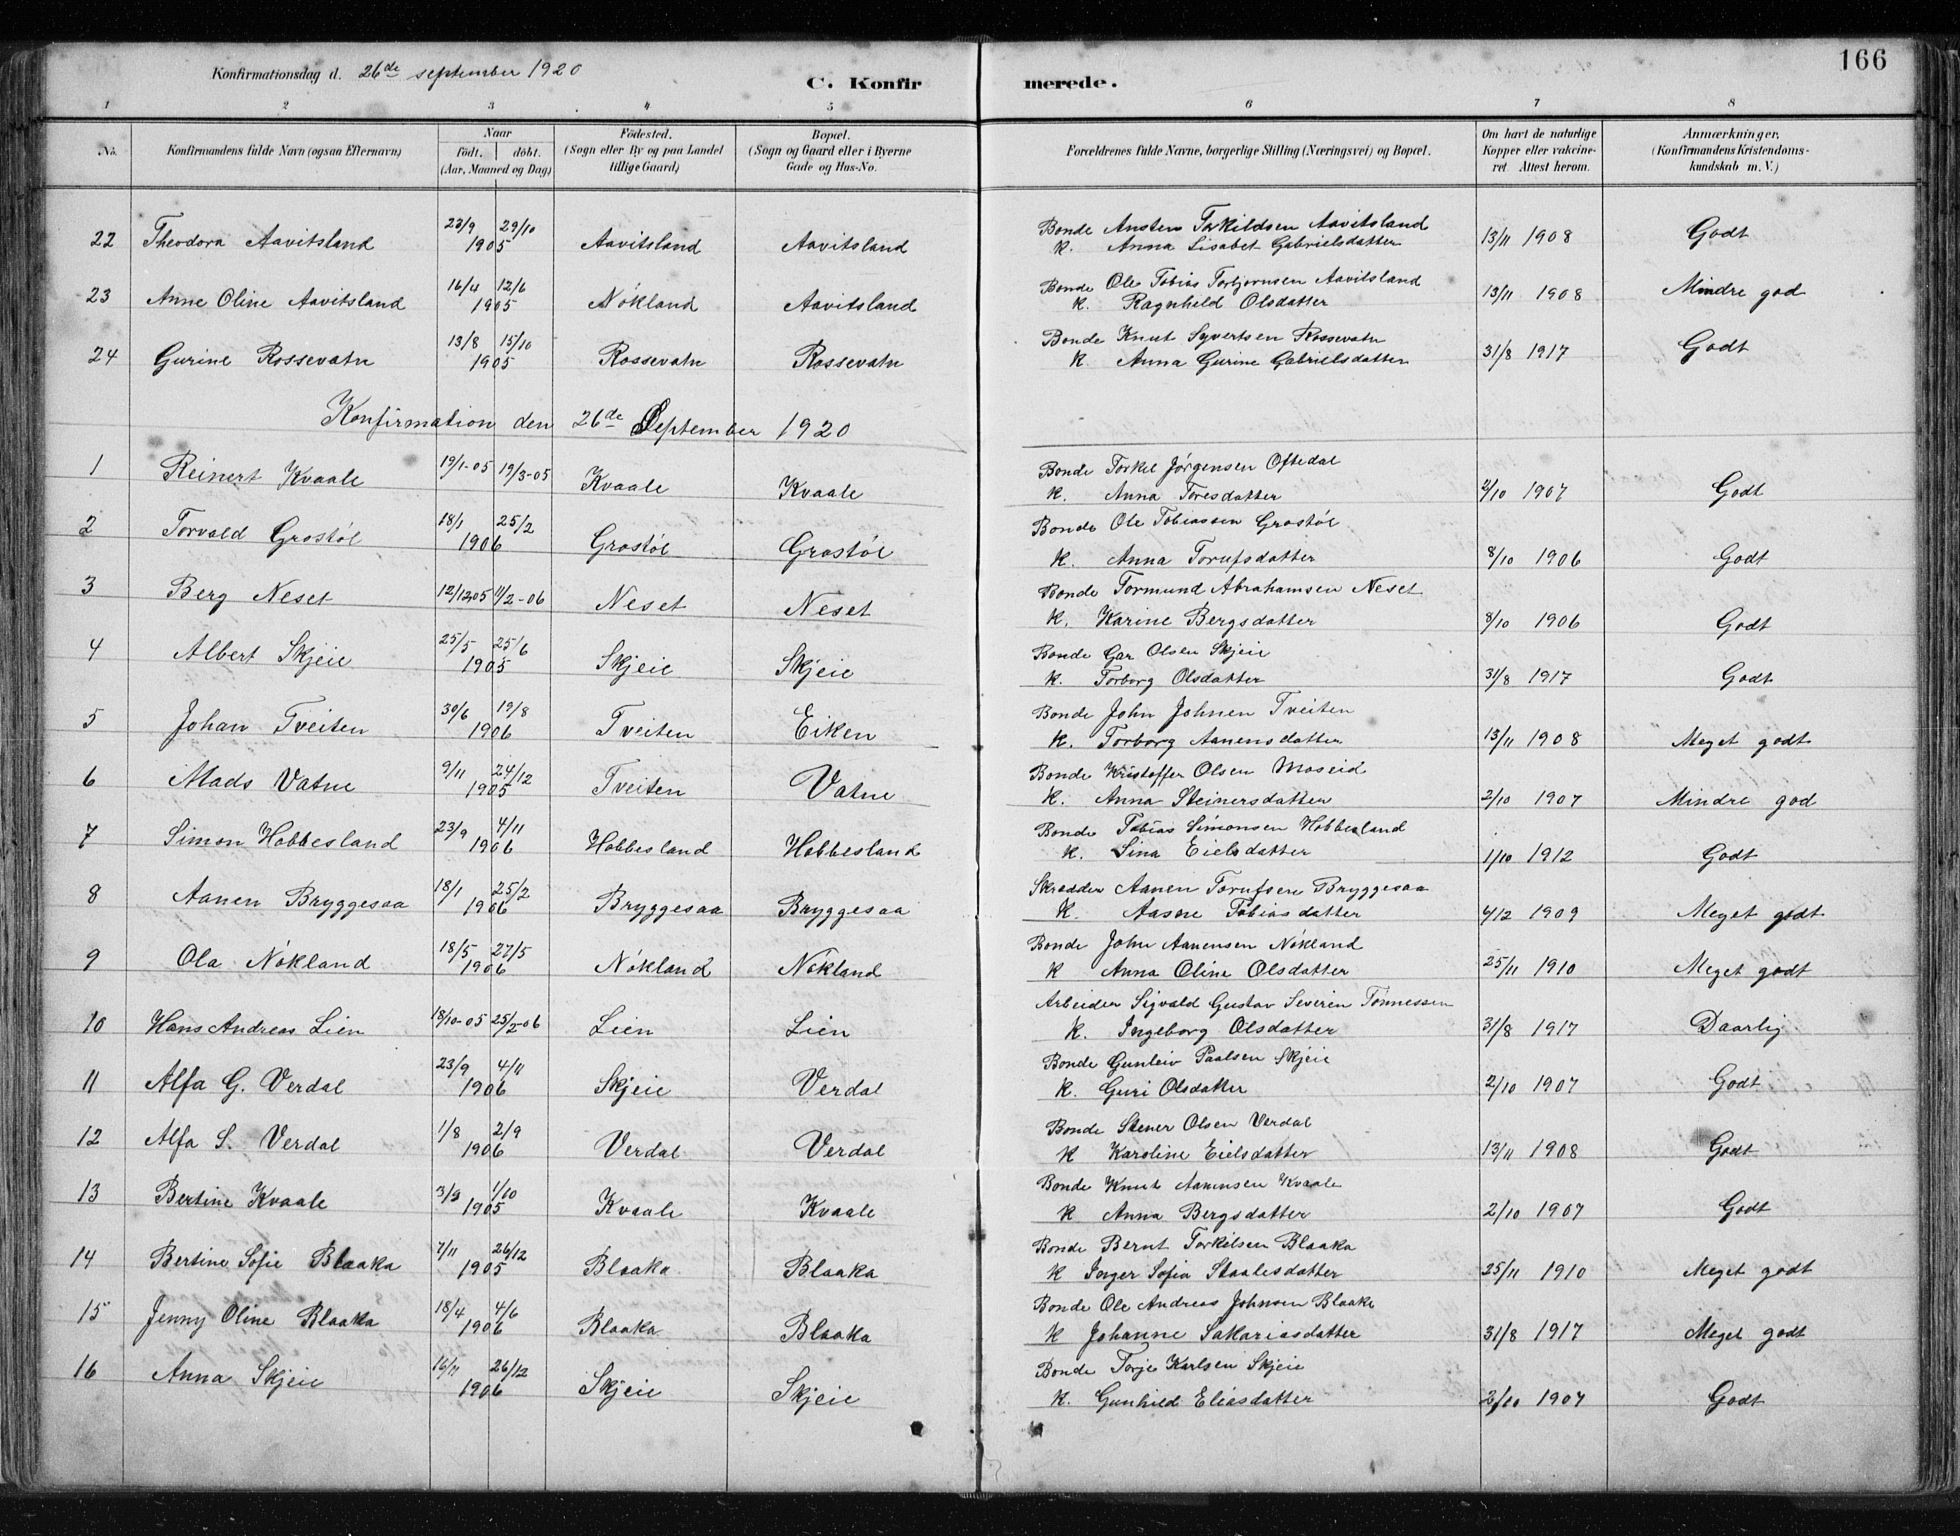 166
Konfirmationsdag d. 26de september 1920
C. Konfirmerede.
1 2 3 4 5 6 7 8
No. Konfirmandens fulde Navn (ogsaa Efternavn) Naar født. døbt. (Aar, Maaned og Dag) Fødested. (Sogn eller By og paa Landet tillige Gaard) Bopæl. (Sogn og Gaard eller i Byerne Gade og Hus-No. Forældrenes fulde Navne, borgerlige Stilling (Næringsvei) og Bopæl. Om havt de naturlige Kopper eller vakcineret Attest herom. Anmærkninger. (Konfirmandens Kristendomskundskab m. V.)
22 Theodora Aavitsland 23/9 29/10 1905 Aavitsland Aavitsland Bonde Ansten Torkildsen Aavitsland K. Anna Lisabet Gabrielsdatter 13/11 1908 Godt
23 Anne Oline Aavitsland 16/4 12/6 1905 Nökland Aavitsland Bonde Ole Tobias Torbjornsen Aavitsland K. Ragnhild Olsdatter 13/11 1908 Mindre god
24 Gurine Rossevatn 13/8 15/10 1905 Rossevatn Rossevatn Bonde Knut Syvertsen Rossevatn K Anna Gurine Gabrielsdatter 31/8 1917 Godt
Konfirmation den 26de September 1920
1 Reinert Kvaale 19/1-05 19/3-05 Kvaale Kvaale Bonde Torkel Jörgensen Oftedal K. Anna Toresdatter 2/10 1907 Godt
2 Torvald Grostöl 18/1 25/2 1906 Grostöl Grostöl Bonde Ole Tobiassen Grostöl K. Anna Torufsdatter 8/10 1906 Godt
3 Berg Neset 12/12 05 11/2-06 Neset Neset Bonde Tormund Abrahamsen Neset K. Karine Bergsdatter 8/10 1906 Godt
4 Albert Skjeie 25/5 25/6 1905 Skjeie Skjeie Bonde Gar Olsen Skjeie K. Torborg Olsdatter 31/8 1917 Godt
5 Johan Tveiten 30/6 19/8 1906 Tveiten Eiken Bonde John Johnen Tveiten K. Torborg Aanensdatter 13/11 1908 Meget godt
6 Mads Vatne 9/11 24/12 1905 Tveiten Vatne Bonde Kristoffer Olsen Moseid K. Anna Steinersdatter 2/10 1907 Mindre god
7 Simon Hobbesland 23/9 4/11 1906 Hobbesland Hobbesland Bonde Tobias Simonsen Hobbesland K. Sina Eielsdatter 1/10 1912 Godt
8 Aanen Bryggesaa 18/1 25/2 1906 Bryggesaa Bryggesaa Skrædder Aanen Torufsen Bryggesaa K. Aasne Tobiasdatter 4/12 1909 Meget godt
9 Ola Nökland 18/5 27/5 1906 Nökland Nökland Bonde John Aanensen Nökland K Anna Oline Olsdatter 25/11 1910 Meget godt
10 Hans Andreas Lien 18/10-05 25/2-06 Lien Lien Arbeider Sigvald Gustav Severin Tönnessen K. Ingeborg Olsdatter 31/8 1917 Daarlig
11 Alfa G. Verdal 23/9 4/11 1906 Skjeie Verdal Bonde Gunleiv Paalsen Skjeie K. Guri Olsdatter 2/10 1907 Godt
12 Alfa S. Verdal 1/8 2/9 1906 Verdal Verdal Bonde Stener Olsen Verdal K Karoline Eielsdatter 13/11 1908 Godt
13 Bertine Kvaale 3/9 1/10 1905 Kvaale Kvaale Bonde Knut Aanensen Kvaale K Anna Bergsdatter 2/10 1907 Godt
14 Bertine Sofie Blaaka 7/11 26/12 1905 Blaaka Blaaka Bonde Bernt Torkilsen Blaaka K Inger Sofia Staalesdatter 25/11 1910 Meget godt
15 Jenny Oline Blaaka 18/4 4/6 1906 Blaaka Blaaka Bonde Ole Andreas Johnsen Blaake K Johanne Sakariasdatter 31/8 1917 Meget godt
16 Anna Skjeie 16/11 26/12 1906 Skjeie Skjeie Bonde Torje Karlsen Skjeie K. Gunhild Eliasdatter 2/10 1907 Godt